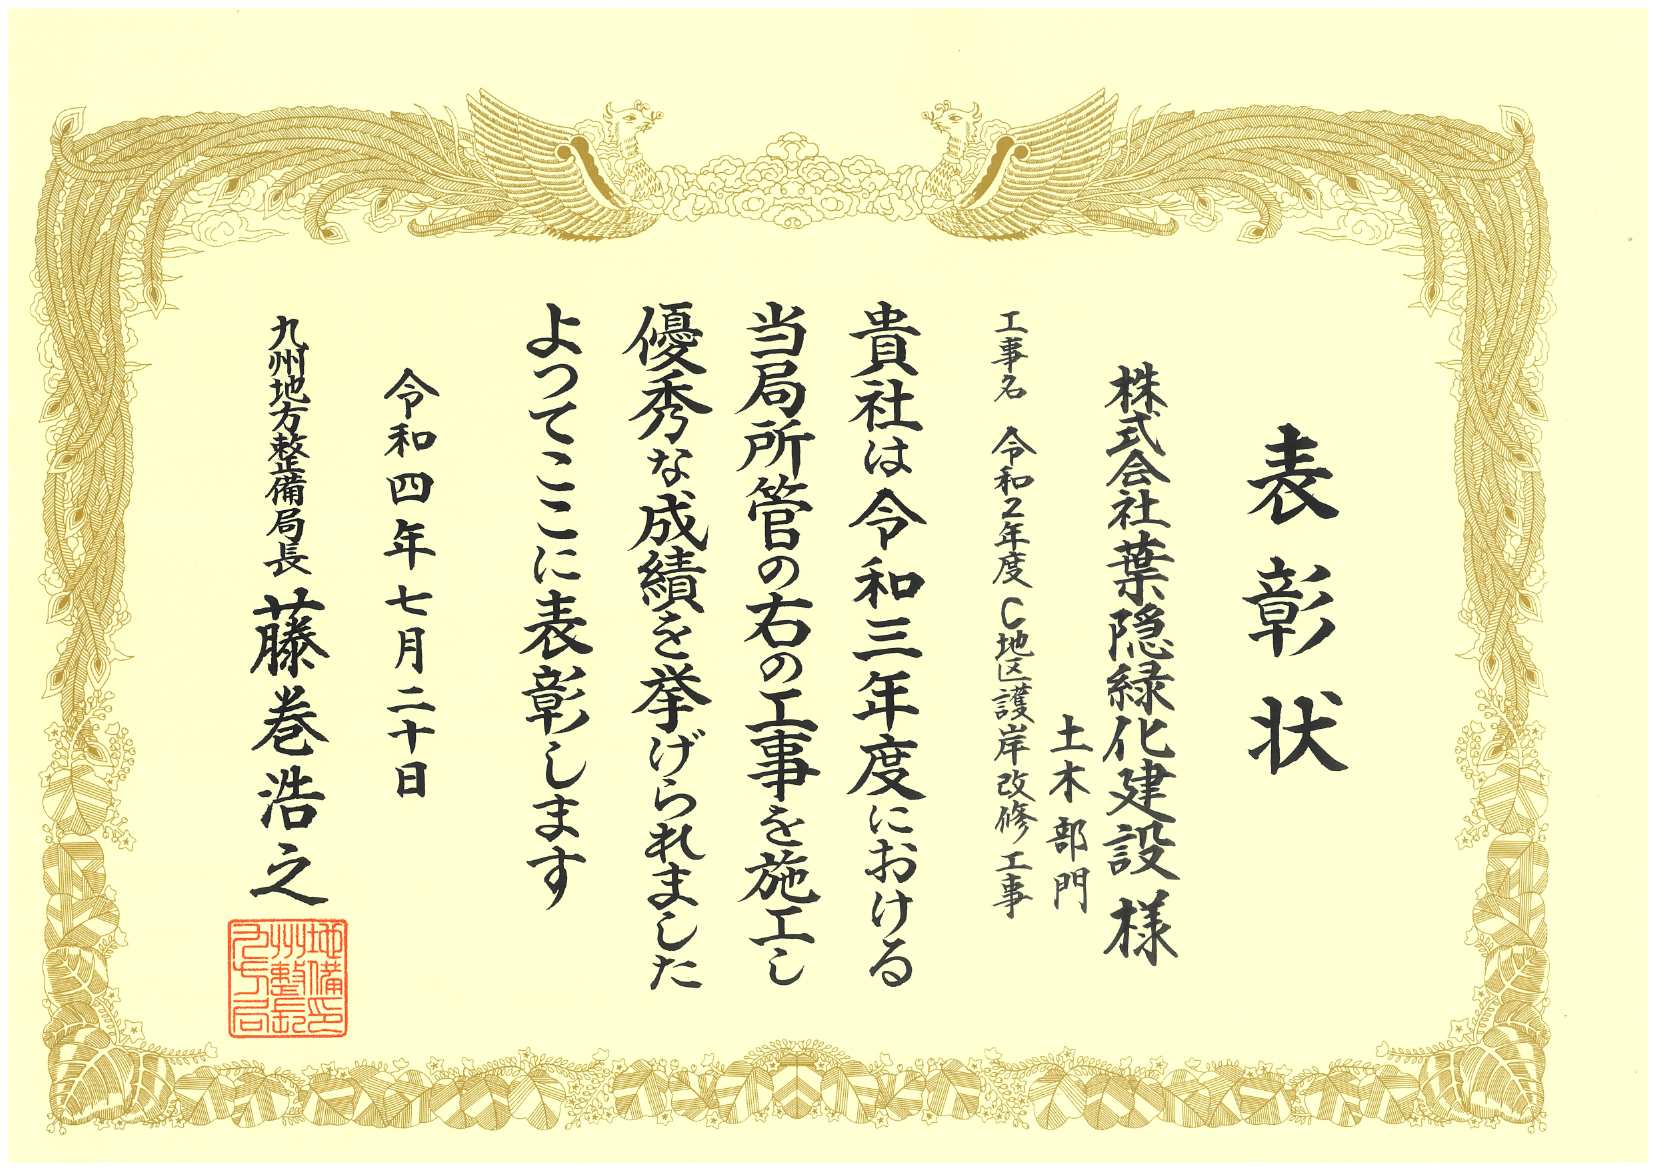 表彰状
株式会社葉隠緑化建設様
土木部門
工事名 令和2年度 C地区護岸改修工事
貴社は令和三年度における
当局所管の右の工事を施工し
優秀な成績を挙げられました
よってここに表彰します
令和四年七月二十日
九州地方整備局長 藤巻浩之
地備印
州整長
九方局